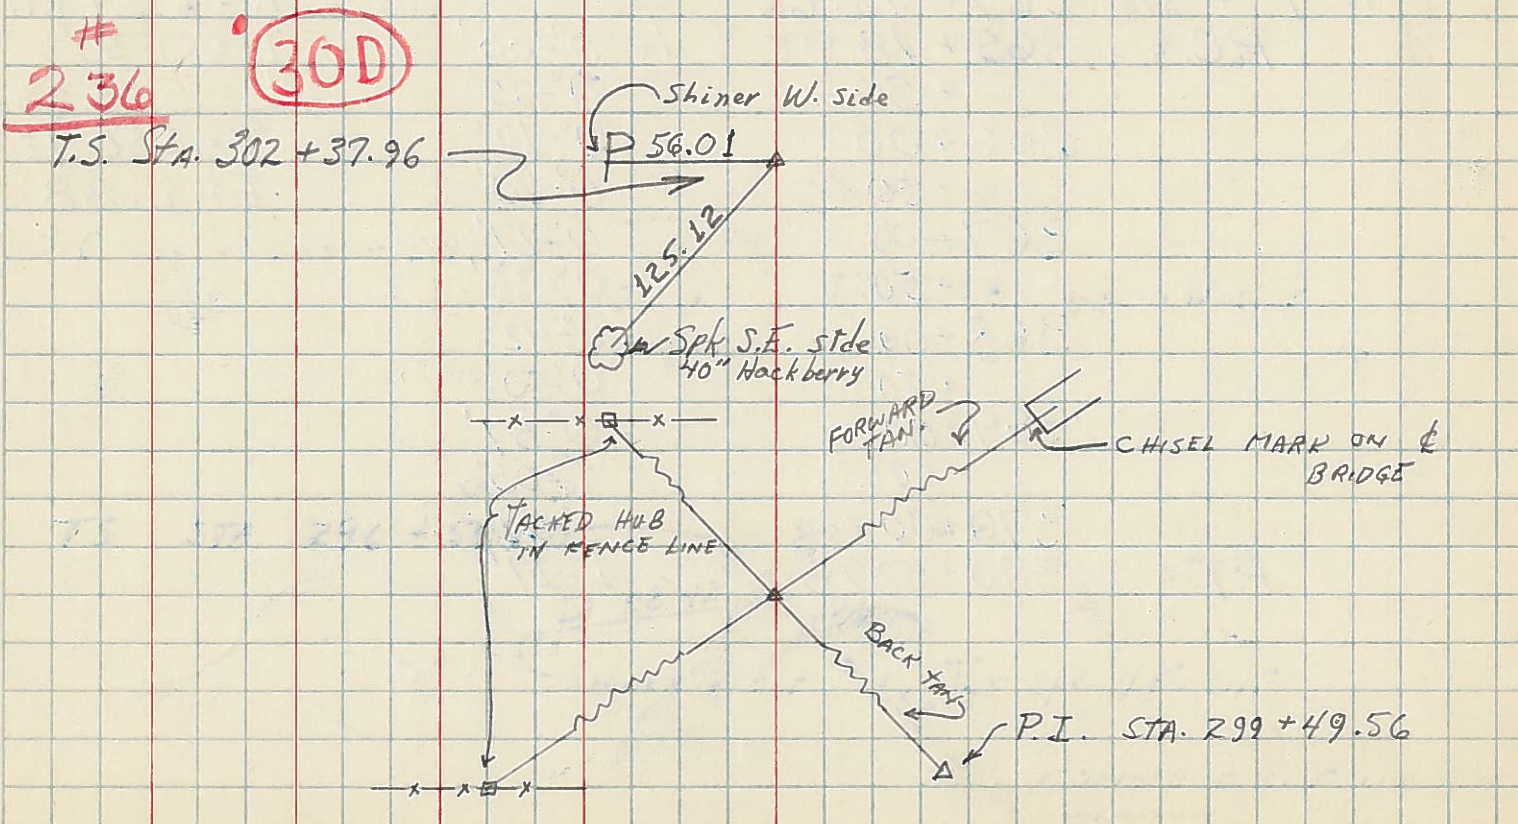 #
236
30D
Shiner W. side
T.S. STA. 302 +37.96
P 56.01
125.12
Spk S.E. side
40" Hackberry
FORWARD
TAN.
CHISEL MARK ON ℄
BRIDGE
TACKED HUB
IN FENCE LINE
BACK TANS
P.I. STA. 299 +49.56